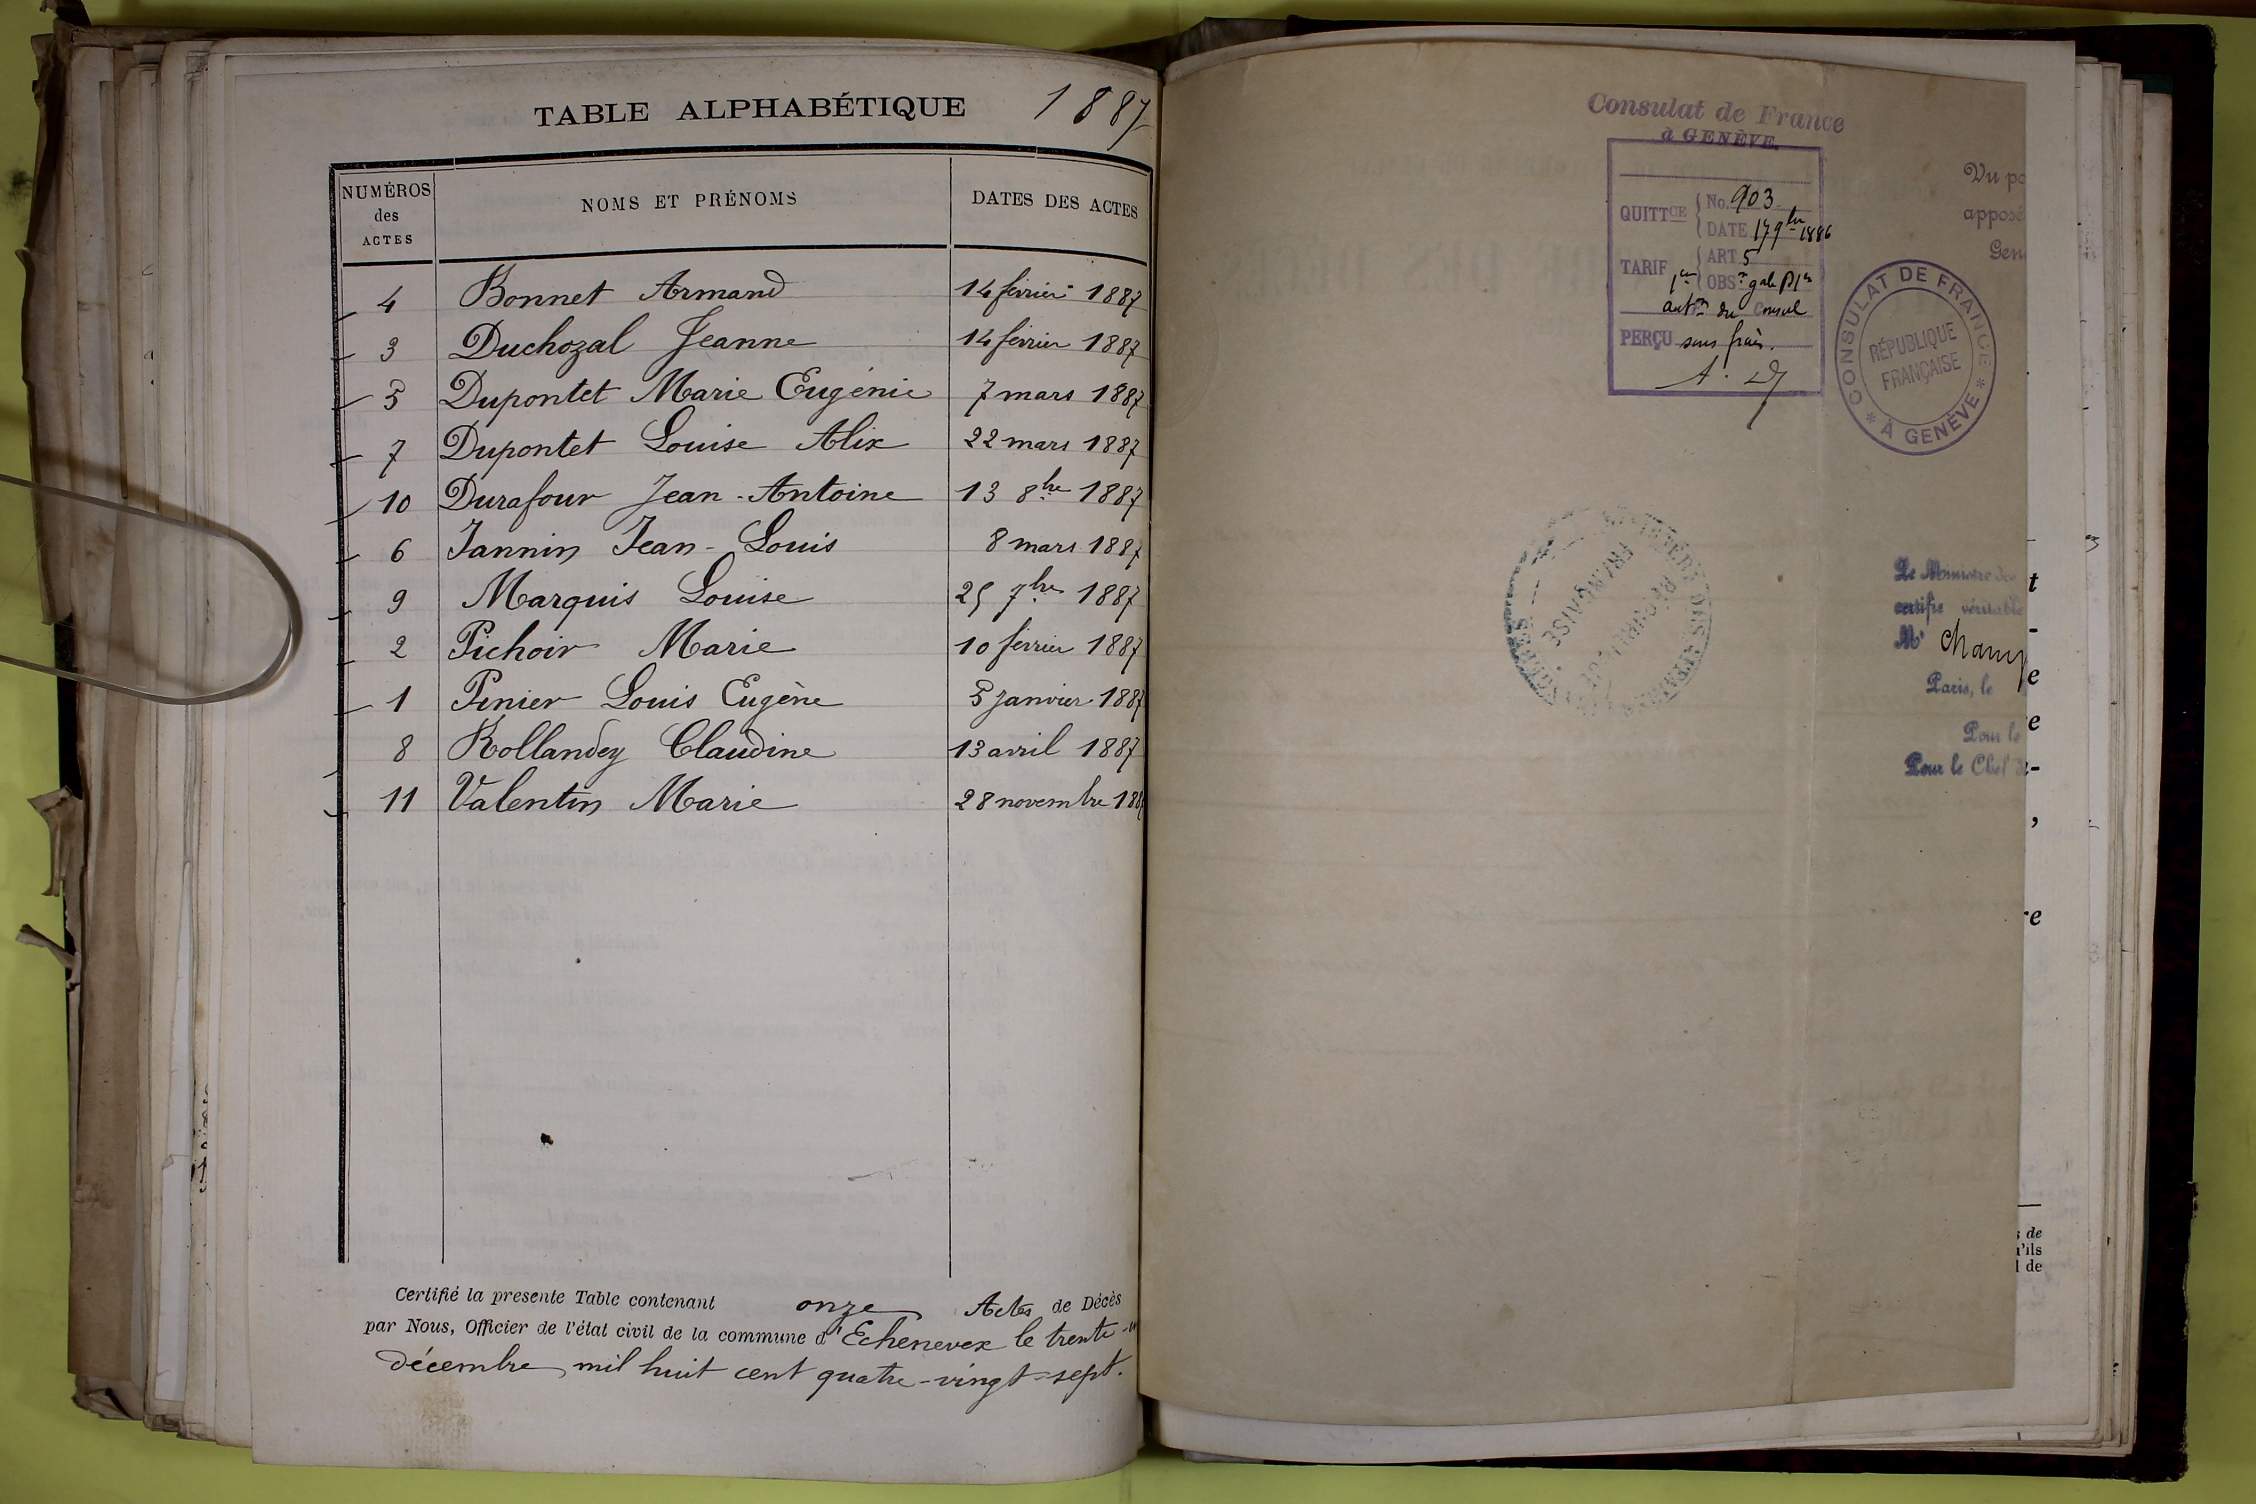 TABLE ALPHABÉTIQUE 1887
NUMÉROS des ACTES NOMS ET PRÉNOMS DATES DES ACTES
4 Bonnet Armand 14 février 1887
3 Duchozal Jeanne 14 février 1887
5 Dupontet Marie Eugénie 7 mars 1887
7 Dupontet Louise Alix 22 mars 1887
10 Durafour Jean-Antoine 13 8bre 1887
6 Jannin Jean-Louis 8 mars 1887
9 Marquis Louise 25 7bre 1887
2 Pichoir Marie 10 février 1887
1 Pinier Louis Eugène 5 janvier 1887
8 Rollandey Claudine 13 avril 1887
11 Valentin Marie 28 novembre 188
Certifié la presente Table contenant onze Actes de Décès
par Nous, Officier de l'état civil de la commune d'Echenevex le trente-
décembre mil huit cent quatre-vingt-sept.
Consulat de France
à GENÈVE.
QUITTCE No. 903
DATE 17 9bre 1886
TARIF ART 5
OBS
du Consul
PERÇU sans frais.
Vu po
apposé
Gen
CONSULAT DE FRANCE * À GENÈVE *
RÉPUBLIQUE
FRANÇAISE
RÉPUBLIQUE
FRANÇAISE
Le Ministre des
certifie véritable
Mr Cham
Paris, le
Pour le
Pour le Chef d
t
e
e
-
,
re
s de
u'ils
l de